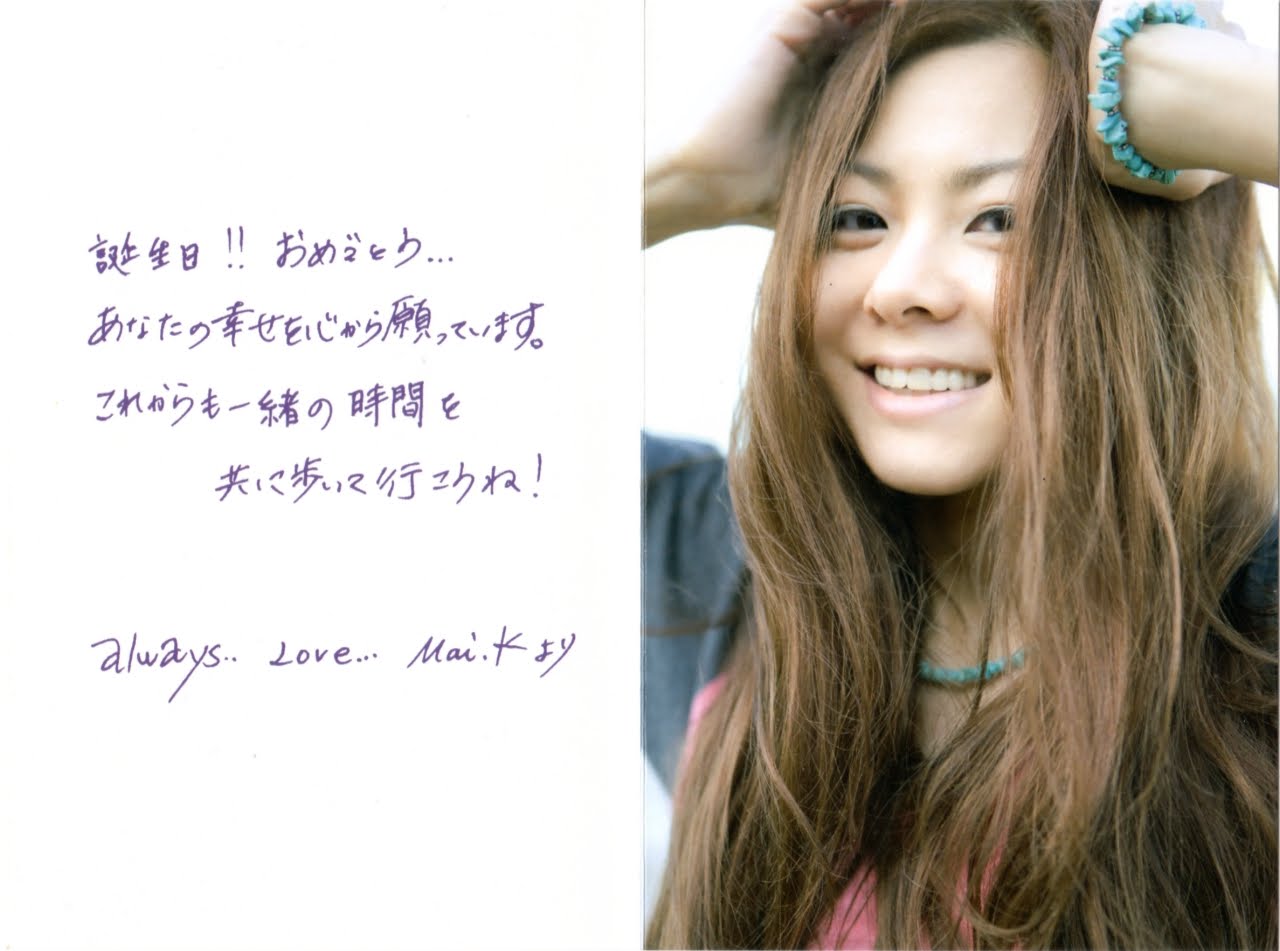 誕生日!! おめでとう...
あなたの幸せを心から願っています。
これからも一緒の時間を
共に歩いて行こうね!
always.. Love... Mai.Kより